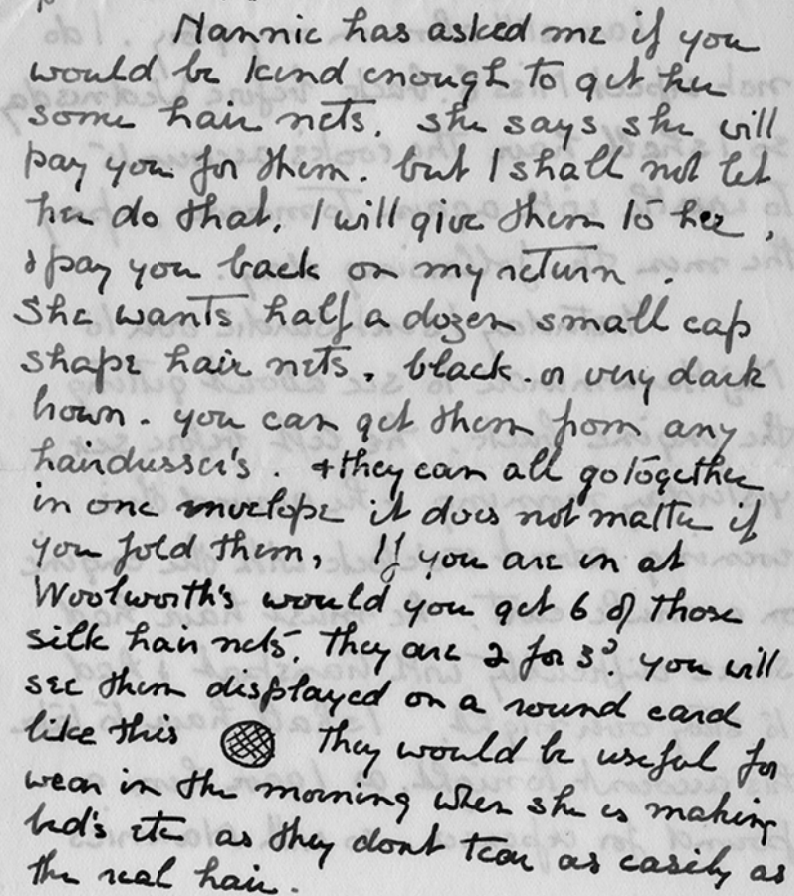 Nannie has asked me if you
would be kind enough to get her
some hair nets. she says she will
pay you for them. but I shall not let
her do that, I will give them to her,
& pay you back on my return.
She wants half a dozen small cap
shape hair nets, black. or very dark
brown. you can get them from any
hairdresser's. & they can all go together
in one envelope it does not matter if
you fold them, If you are in at
Woolworth's would you get 6 of those
silk hair nets. They are 2 for 3ᵈ. you will
see them displayed on a round card
like this They would be useful for
wear in the morning when she is making
bed's etc as they dont tear as easily as
the real hair.